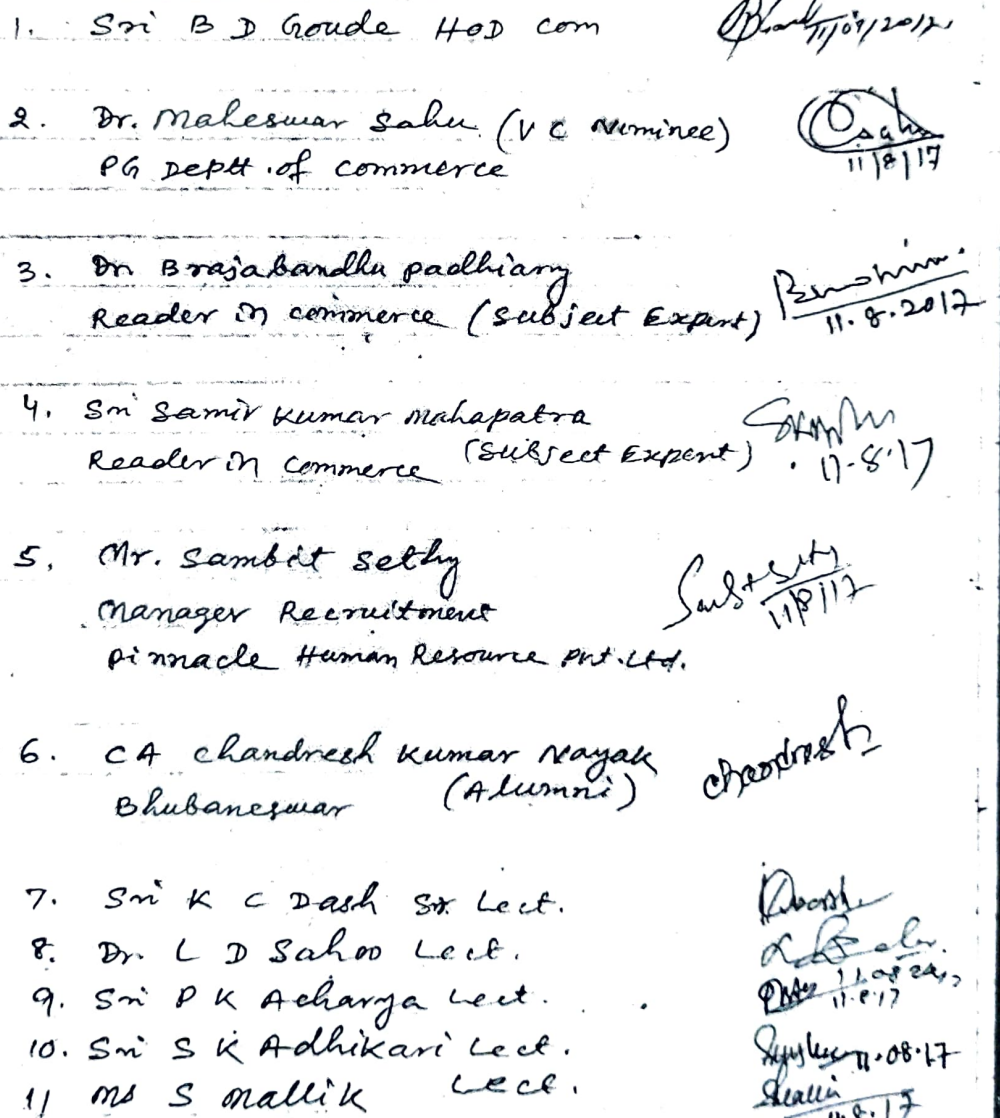 1. Sri B D Goude HOD Com 11/08/2017
2. Dr. Maheswar Sahu (V C Nominee) Sahu
PG Deptt. of Commerce 11/8/17
3. Dr Brajabandhu Padhiary
Reader in Commerce (Subject Expert) 11.8.2017
4. Sri Samir Kumar Mahapatra
Reader in Commerce (Subject Expert) 11-8-17
5. Mr. Sambit Sethy
Manager Recruitment 11/8/17
Pinnacle Human Resource Pvt. Ltd.
6. CA Chandresh Kumar Nayak Chandresh
Bhubaneswar (Alumni)
7. Sri K C Dash Sr. Lect.
8. Dr. L D Sahoo Lect.
9. Sri P K Acharya Lect. 11.8.17
10. Sri S K Adhikari Lect. 11.08.17
11 Ms S Mallik Lect.